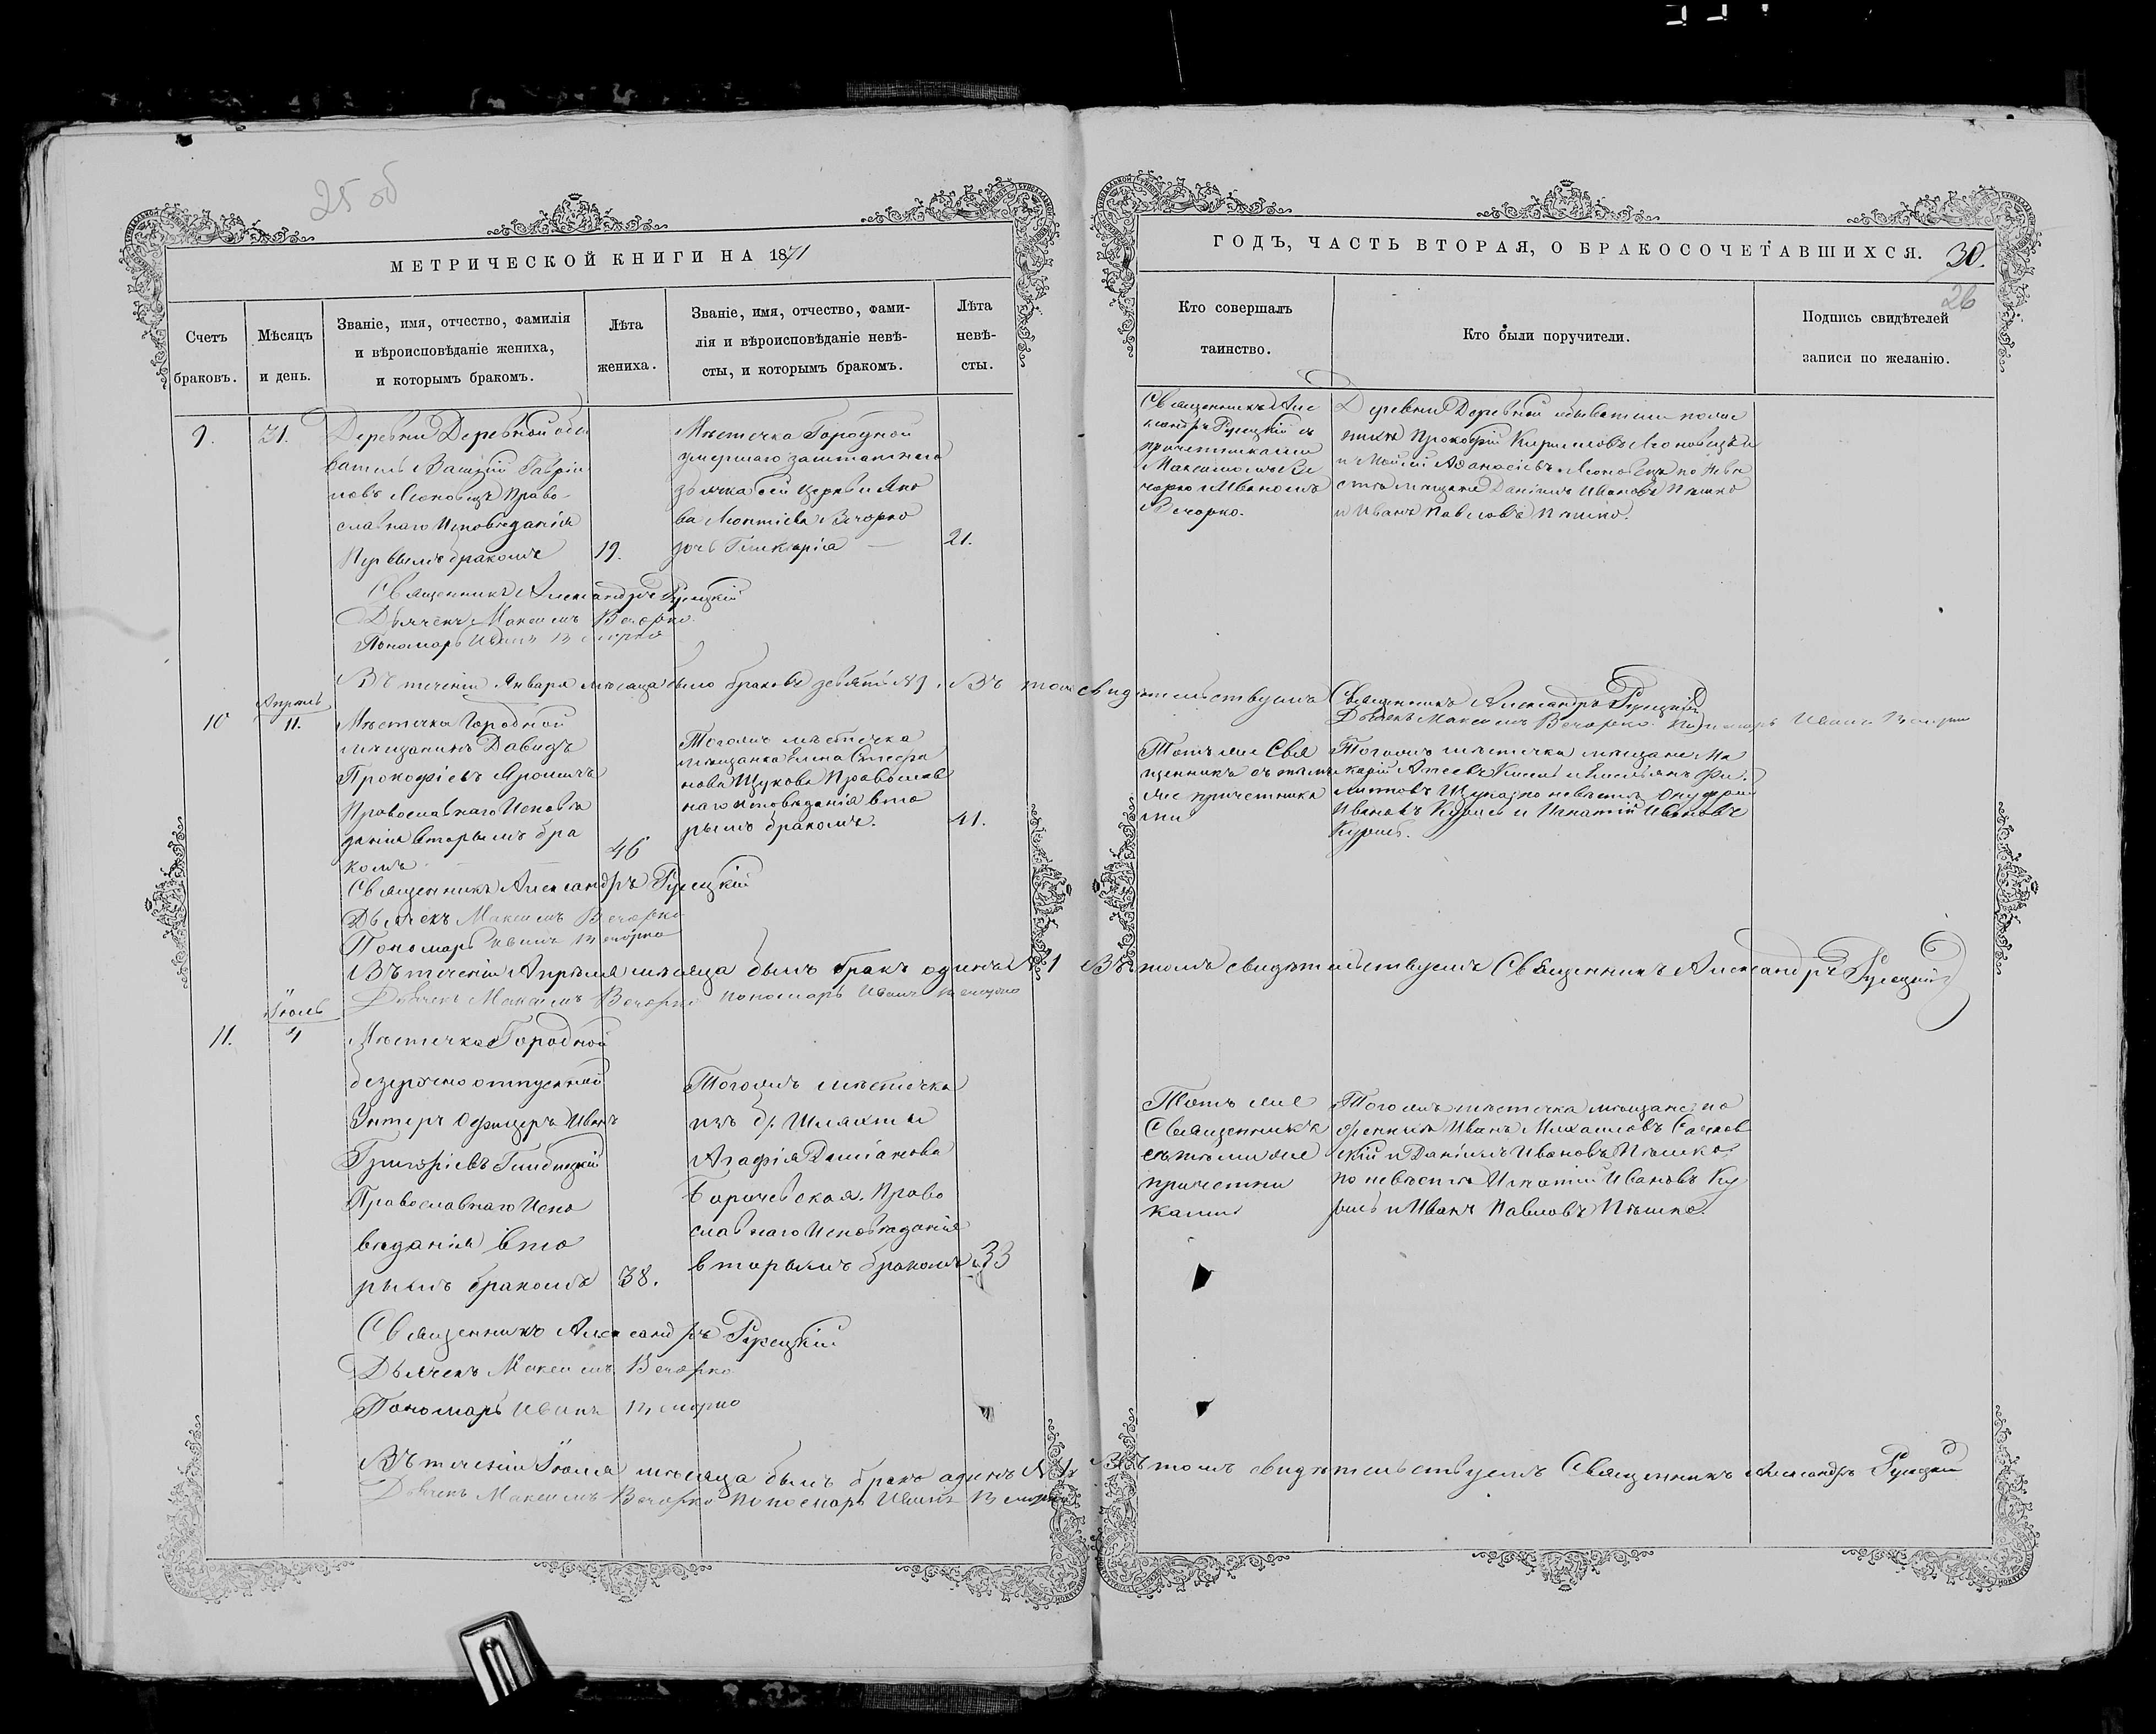 25 об
МЕТРИЧЕСКОЙ КНИГИ НА 1871
Счетъ
браковъ.
Мѣсяцъ
и день.
Званіе, имя, отчество, фамилія
и вѣроисповѣданіе жениха,
и которымъ бракомъ.
Лѣта
жениха.
Званіе, имя, отчество, фами-
лія и вѣроисповѣданіе невѣ-
сты, и которымъ бракомъ.
Лѣта
невѣ-
сты.
9.
31.
Деревни Деревной обы
ватель Василій Гаврiи
ловъ Леоновецъ Право-
славнаго Исповѣданія
Первымъ бракомъ
19.
Мѣстечка Городной
умершаго заштатнаго
дьячка сей Церкви Яко
ва Леонтіева Вечорко
дочь Гликерія
21.
Священникъ Александръ Рурецкій
Дьячекъ Максимъ Вечорко
Пономарь Иванъ Вечорко
Въ теченіи Января мѣсяца было браковъ девять №9. Въ томъ свидѣтельствуемъ Священникъ Александръ Рурецкій
Дьячекъ Максимъ Вечорко Пономарь Иванъ Вечорко
10
Апрѣль
11.
Мѣстечка Городной
мѣщанинъ Давидъ
Прокофіевъ Яромичъ
Православнаго Исповѣ
данія вторымъ бра
комъ
46
Тогожъ мѣстечка
мѣщанка Елена Стефа
нова Щукова Православ
наго исповѣданія вто
рымъ бракомъ.
41.
Священникъ Александръ Рурецкій
Дьячекъ Максимъ Вечорко
Пономарь Иванъ Вечорко
Въ теченіи Апрѣля мѣсяца былъ бракъ одинъ №1 Въ томъ свидѣтельствуемъ Священникъ Александръ Рурецкій
Дьячекъ Максимъ Вечорко Пономарь Иванъ Вечорко
11.
Іюль
4
Мѣстечка Городной
безсрочно отпускной
Унтеръ Офицеръ Иванъ
Григоріевъ Глибицкій
Православнаго Испо
вѣданія вто
рымъ бракомъ
38.
Тогожъ мѣстечка
изъ б. Шляхты
Агафія Даміанова
Борычевская. Право
славнаго Исповѣданія
вторымъ бракомъ
33
Священникъ Александръ Рурецкій
Дьячекъ Максимъ Вечорко
Пономарь Иванъ Вечорко
Въ теченіи Іюля мѣсяца былъ бракъ одинъ №1 Въ томъ свидѣтельствуемъ Священникъ Александръ Рурецкій
Дьячекъ Максимъ Вечорко Пономарь Иванъ Вечорко
ГОДЪ, ЧАСТЬ ВТОРАЯ, О БРАКОСОЧЕТАВШИХСЯ.
30.
26
Кто совершалъ
таинство.
Кто были поручители.
Подпись свидѣтелей
записи по желанію.
Священникъ Але
ксандръ Рурецкій съ
причетниками
Максимомъ Ве
чорко и Иваномъ
Вечорко.
Деревни Деревной обыватели по же
нихѣ Прокофій Кирилловъ Леоновецъ
и Моисей Афанасіевъ Леоновецъ по невѣ
стѣ мѣщане Даніилъ Ивановъ Пѣшко
и Иванъ Павловъ Пѣшко.
Тотъ же Свя
щенникъ съ тѣми
же причетника
ми
Тогожъ мѣстечка мѣщане Ма
карій Кисель и Емельянъ Фи
липповъ Щука, по невѣстѣ Онуфрій
Ивановъ Куришъ и Игнатій Ивановъ
Куришъ.
Тотъ же
Священникъ
съ тѣми же
причетни
ками
Тогожъ мѣстечка мѣщане по
женихѣ Иванъ Михаиловъ
и Даніилъ Ивановъ Пѣшко
по невѣстѣ Игнатій Ивановъ Ку
ришъ и Иванъ Павловъ Пѣшко.